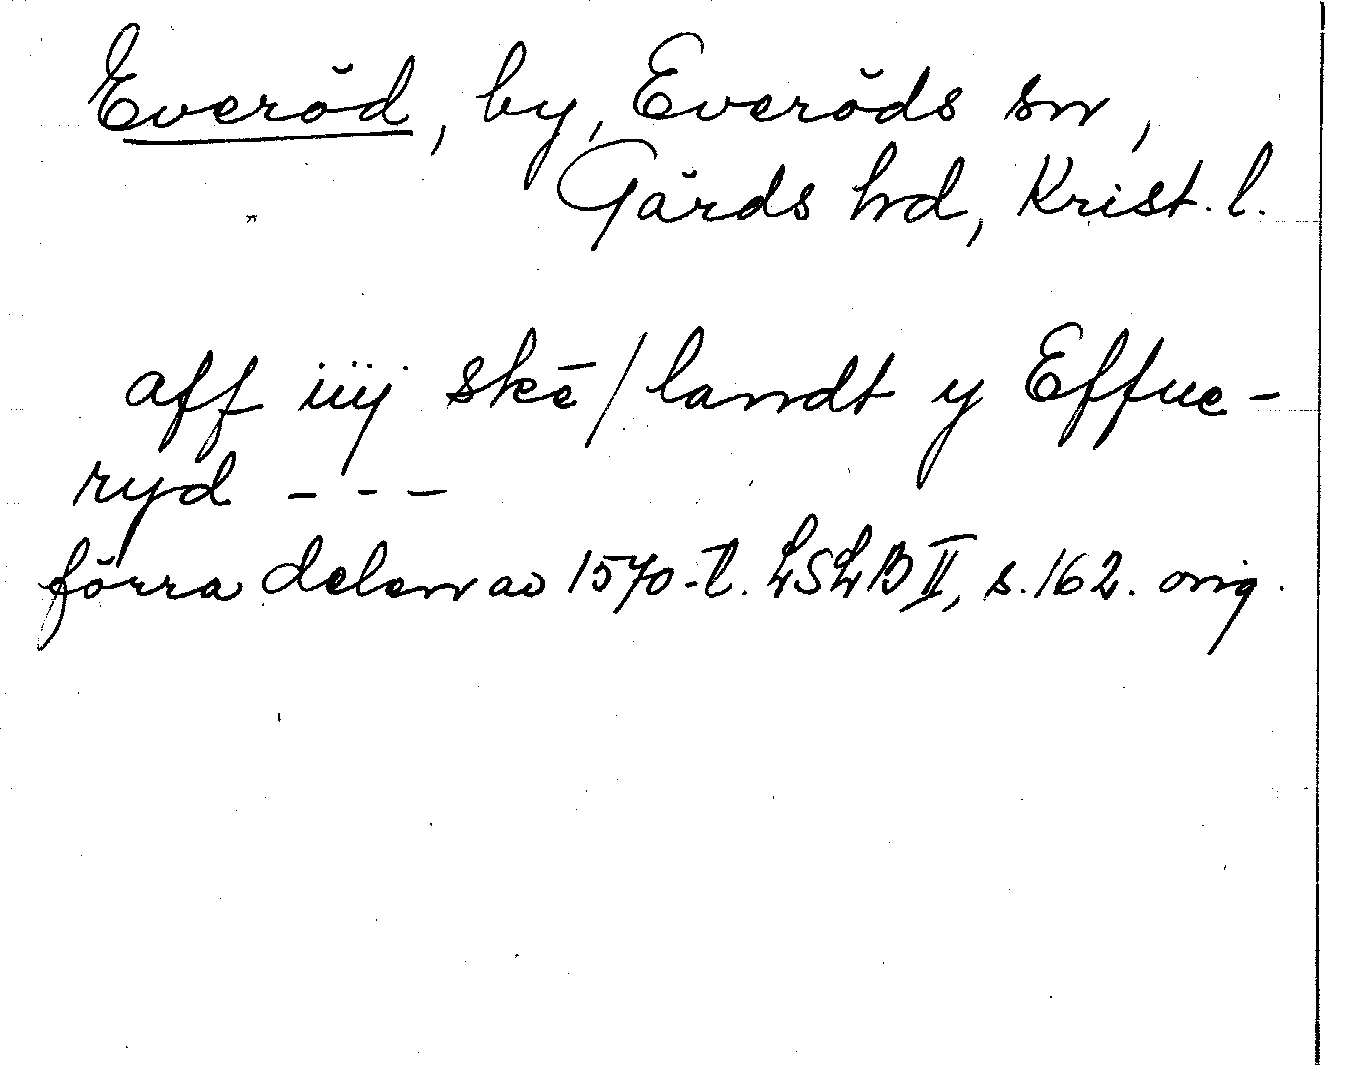 Everöd, by, Everöds sn,
Gärds hd, Krist. l.
aff iiij skē / landt y Effue-
ryd - - -
förra delen av 1570-t. LSLB II, s. 162. orig.